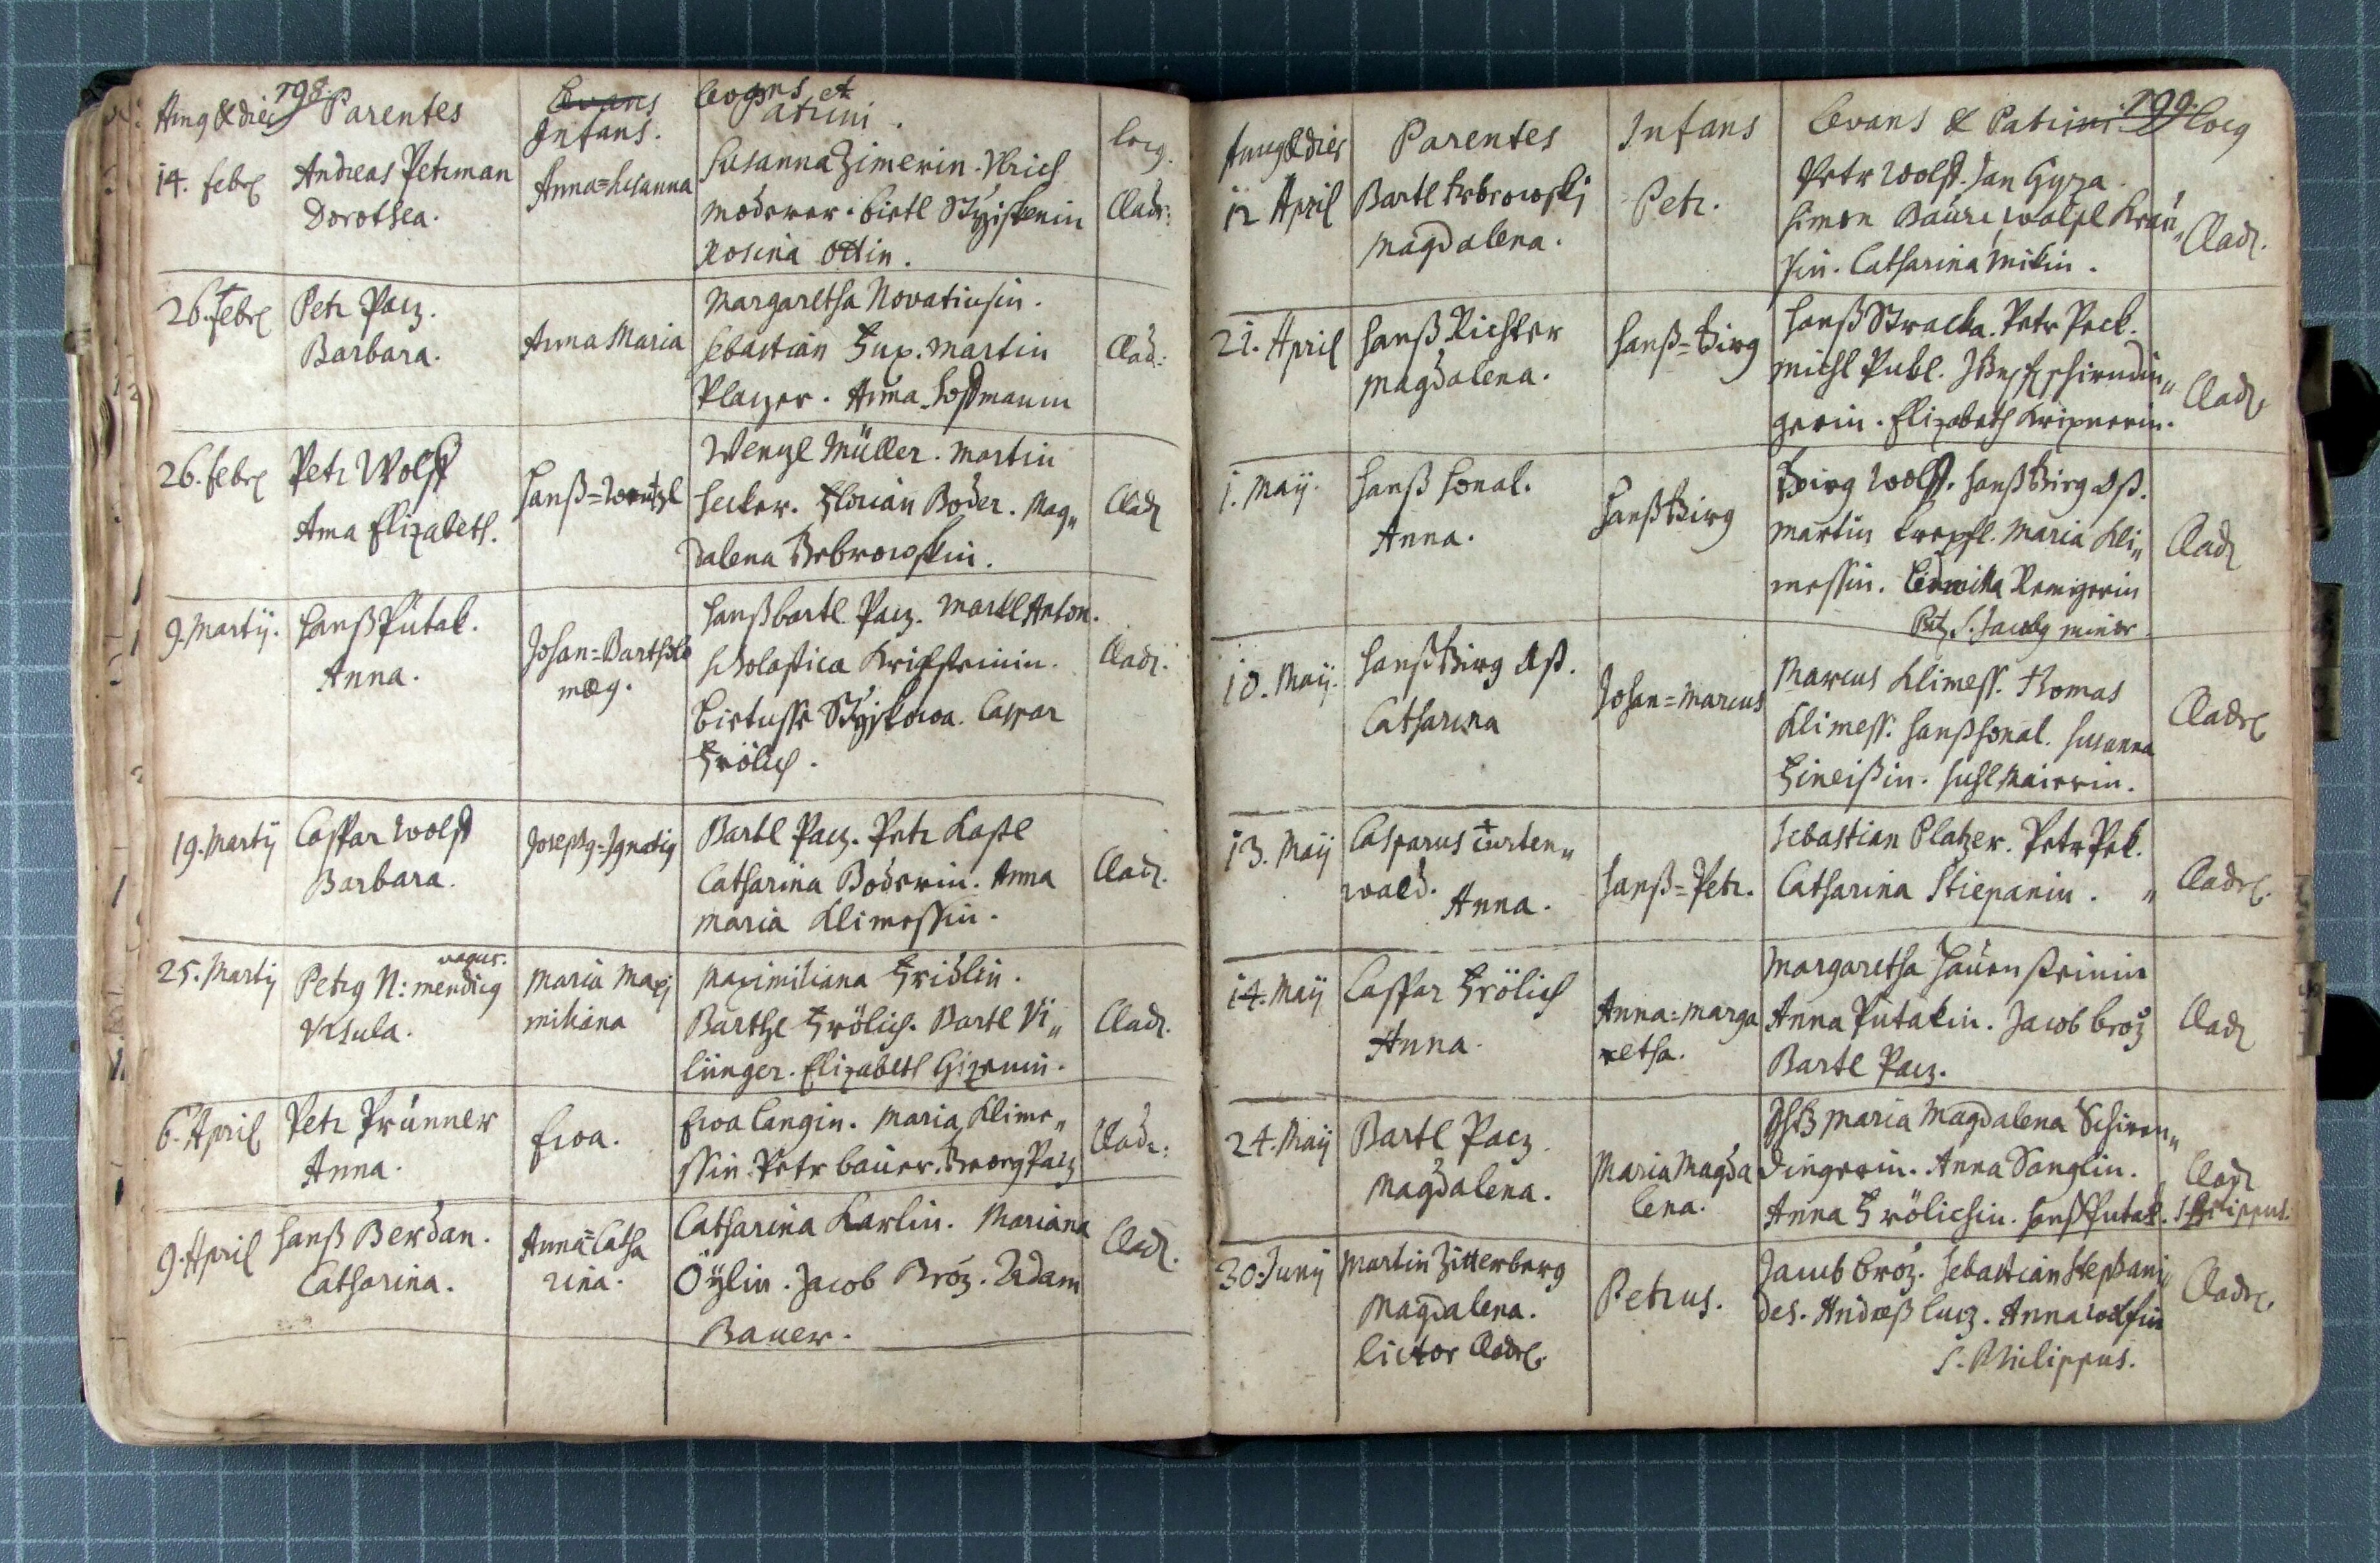 198.
Parentes
Infans.
Levans et
Patrini.
Locus
14. Febr
Andreas Petrman
Dorothea.
Anna=Susanna
Susanna Zimerin. Ulrich
Moderer. Lietl
Rosina Ottin.
Cladr:
26. Febr
Petr Pacz.
Barbara.
Anna Maria
Margaretha Novatinsin.
Sebastian Fux. Martin
Placzer. Anna Hoffmanin
Clad:
26. Febr
Petr Wolff
Anna Elizabeth.
Hanß=Wentzl
Wenzl Müller. Martin
Hecker. Florian Boder. Mag„
dalena Bebrowskin.
Cladr
9. Martij.
Hanß Putak.
Anna.
Johan=Bartholo
mæus.
Hanß bartl Pacz. Martl Anton.
Scholastica
Caspar
Frölich.
Cladr.
19. Martij
Caspar Wolff
Barbara.
Josephus=Ignatius
Bartl Pacz. Petr Kastl
Catharina Boderin. Anna
Maria Klimessin.
Cladr.
25. Martij
vagus.
Petrus N: mendicus
Ursula.
Maria Maxi
miliana
Maximiliana Fridlin.
Barthl Frölich. Bartl Vi„
linger. Elizabeth
Cladr.
6. April
Petr Prunner
Anna.
Ewa.
Ewa Langin. Maria Klime„
ssin. Petr bauer. Georg Pacz
Cladr:
9. April
Hanß Berdan.
Catharina.
Anna=Catha
rina.
Catharina Karlin. Mariana
Öÿlin. Jacob Broz. Adam
Bauer.
Cladr.
199.
Parentes
Infans
Levans & Patrini
Locus
12 April
Bartl
Magdalena.
Petr.
Petr Wolff. Jan Gyza.
Simon Baur,
Catharina Mikin.
Cladr.
21. April
Hanß Richter
Magdalena.
Hanß=Girg
Hanß Stracka. Petr Peck.
Michl Publ.
gerin. Elizabeth Kripnerin.
Cladr
1. Maij.
Hanß Honal.
Anna.
Hanß Girg
Girg Wolff. Hanß Girg Ast.
Martin Maria Kli„
messin. Ludmilla
S. Jacobus minor
Cladr
10. Maij.
Hanß Girg Ast.
Catharina
Johan=Marcus
Marcus Klimess. Thomas
Klimess. Hanß Honal. Susanna
Fineißin.
Cladr
13. Maij
Casparus
wald. Anna.
Hanß=Petr.
Sebastian Platzer. Petr Pek.
Catharina Stiepanin.
Cladr.
14. Maij
Caspar Frölich
Anna.
Anna=Marga
retha.
Margaretha Hauensteinin
Anna Putakin. Jacob broz
Bartl Pacz.
Cladr
24. Maij
Bartl Pacz
Magdalena.
Maria Magda
lena.
Maria Magdalena Schirn„
dingerin. Anna Sanglin.
Anna Frölichin. Hanß Putak.
Cladr
S. Philippus.
30. Junij
Martin Zitterberg
Magdalena.
lictor Cladr.
Petrus.
Jacob broz. Sebastian Stephani
des. Andreß Lucz. Anna Wolfin
S. Philippus.
Cladr.